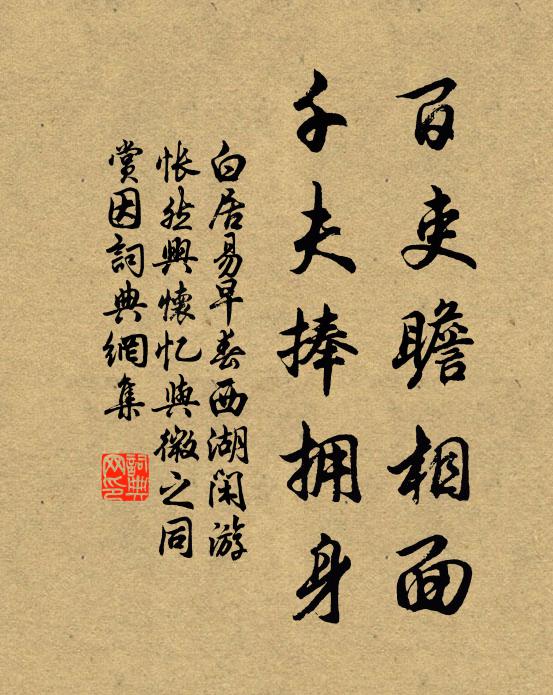 百吏瞻相面
千夫捧拥身
白居易早春西湖闲游
怅然興懷忆與微之同
赏因詞典網集
詞典
网印